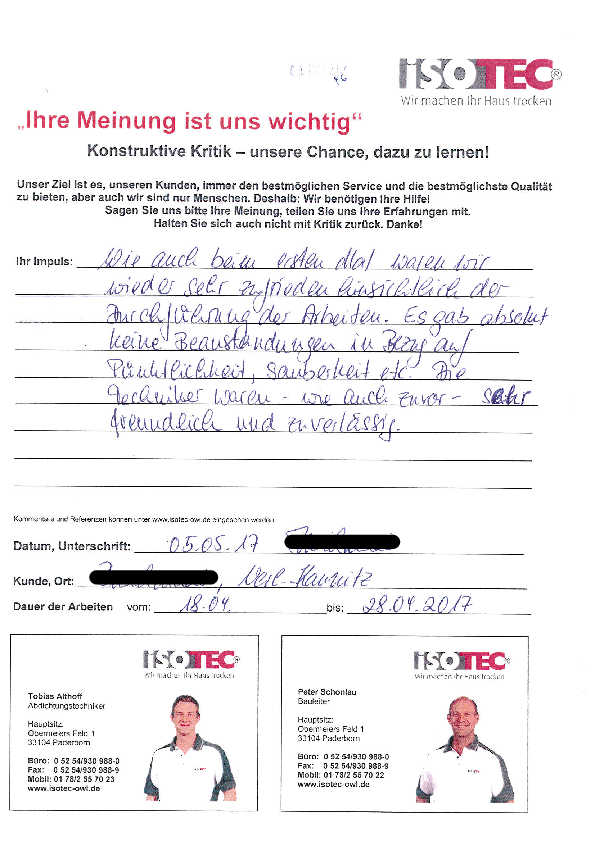 ISOTEC®
Wir machen Ihr Haus trocken
„Ihre Meinung ist uns wichtig“
Konstruktive Kritik – unsere Chance, dazu zu lernen!
Unser Ziel ist es, unseren Kunden, immer den bestmöglichen Service und die bestmöglichste Qualität
zu bieten, aber auch wir sind nur Menschen. Deshalb: Wir benötigen Ihre Hilfe!
Sagen Sie uns bitte Ihre Meinung, teilen Sie uns Ihre Erfahrungen mit.
Halten Sie sich auch nicht mit Kritik zurück. Danke!
Ihr Impuls: Wie auch beim ersten Mal waren wir
wieder sehr zufrieden hinsichtlich der
Durchführung der Arbeiten. Es gab absolut
keine Beanstandungen in Bezug auf
Pünktlichkeit, Sauberkeit etc. Die
Techniker waren - wie auch zuvor - sehr
freundlich und zuverlässig.
Kommentare und Referenzen können unter www.isotec-owl.de eingesehen werden
Datum, Unterschrift: 05.05.17
Kunde, Ort: , Verl-Kaunitz
Dauer der Arbeiten vom: 18.04. bis: 28.04.2017
ISOTEC®
Wir machen Ihr Haus trocken
Tobias Althoff
Abdichtungstechniker
Hauptsitz:
Obermeiers Feld 1
33104 Paderborn
Büro: 0 52 54/930 988-0
Fax: 0 52 54/930 988-9
Mobil: 01 78/2 55 70 23
www.isotec-owl.de
ISOTEC®
Wir machen Ihr Haus trocken
Peter Schonlau
Bauleiter
Hauptsitz:
Obermeiers Feld 1
33104 Paderborn
Büro: 0 52 54/930 988-0
Fax: 0 52 54/930 988-9
Mobil: 01 78/2 55 70 22
www.isotec-owl.de